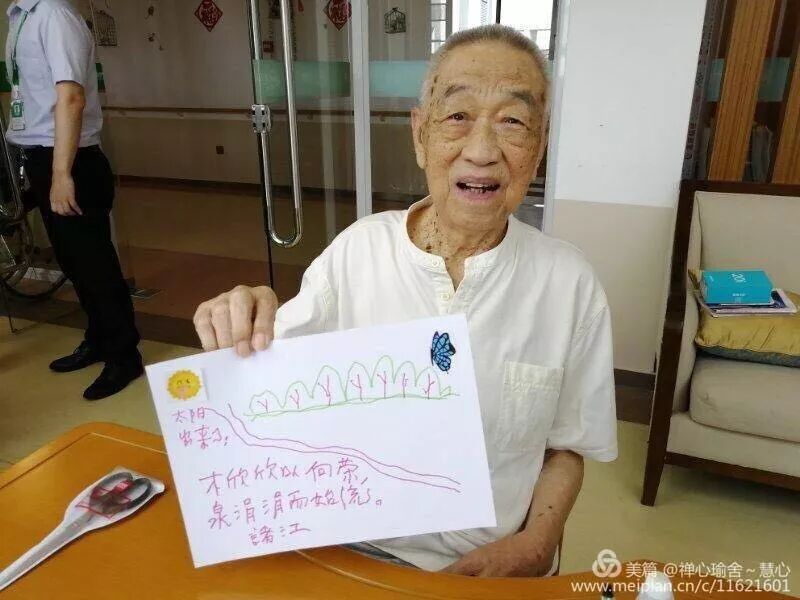 太阳
出来了,
木欣欣以向荣,
泉涓涓而始流。
諸江
美篇 @禅心瑜舍～慧心
www.meipian.cn/c/11621601